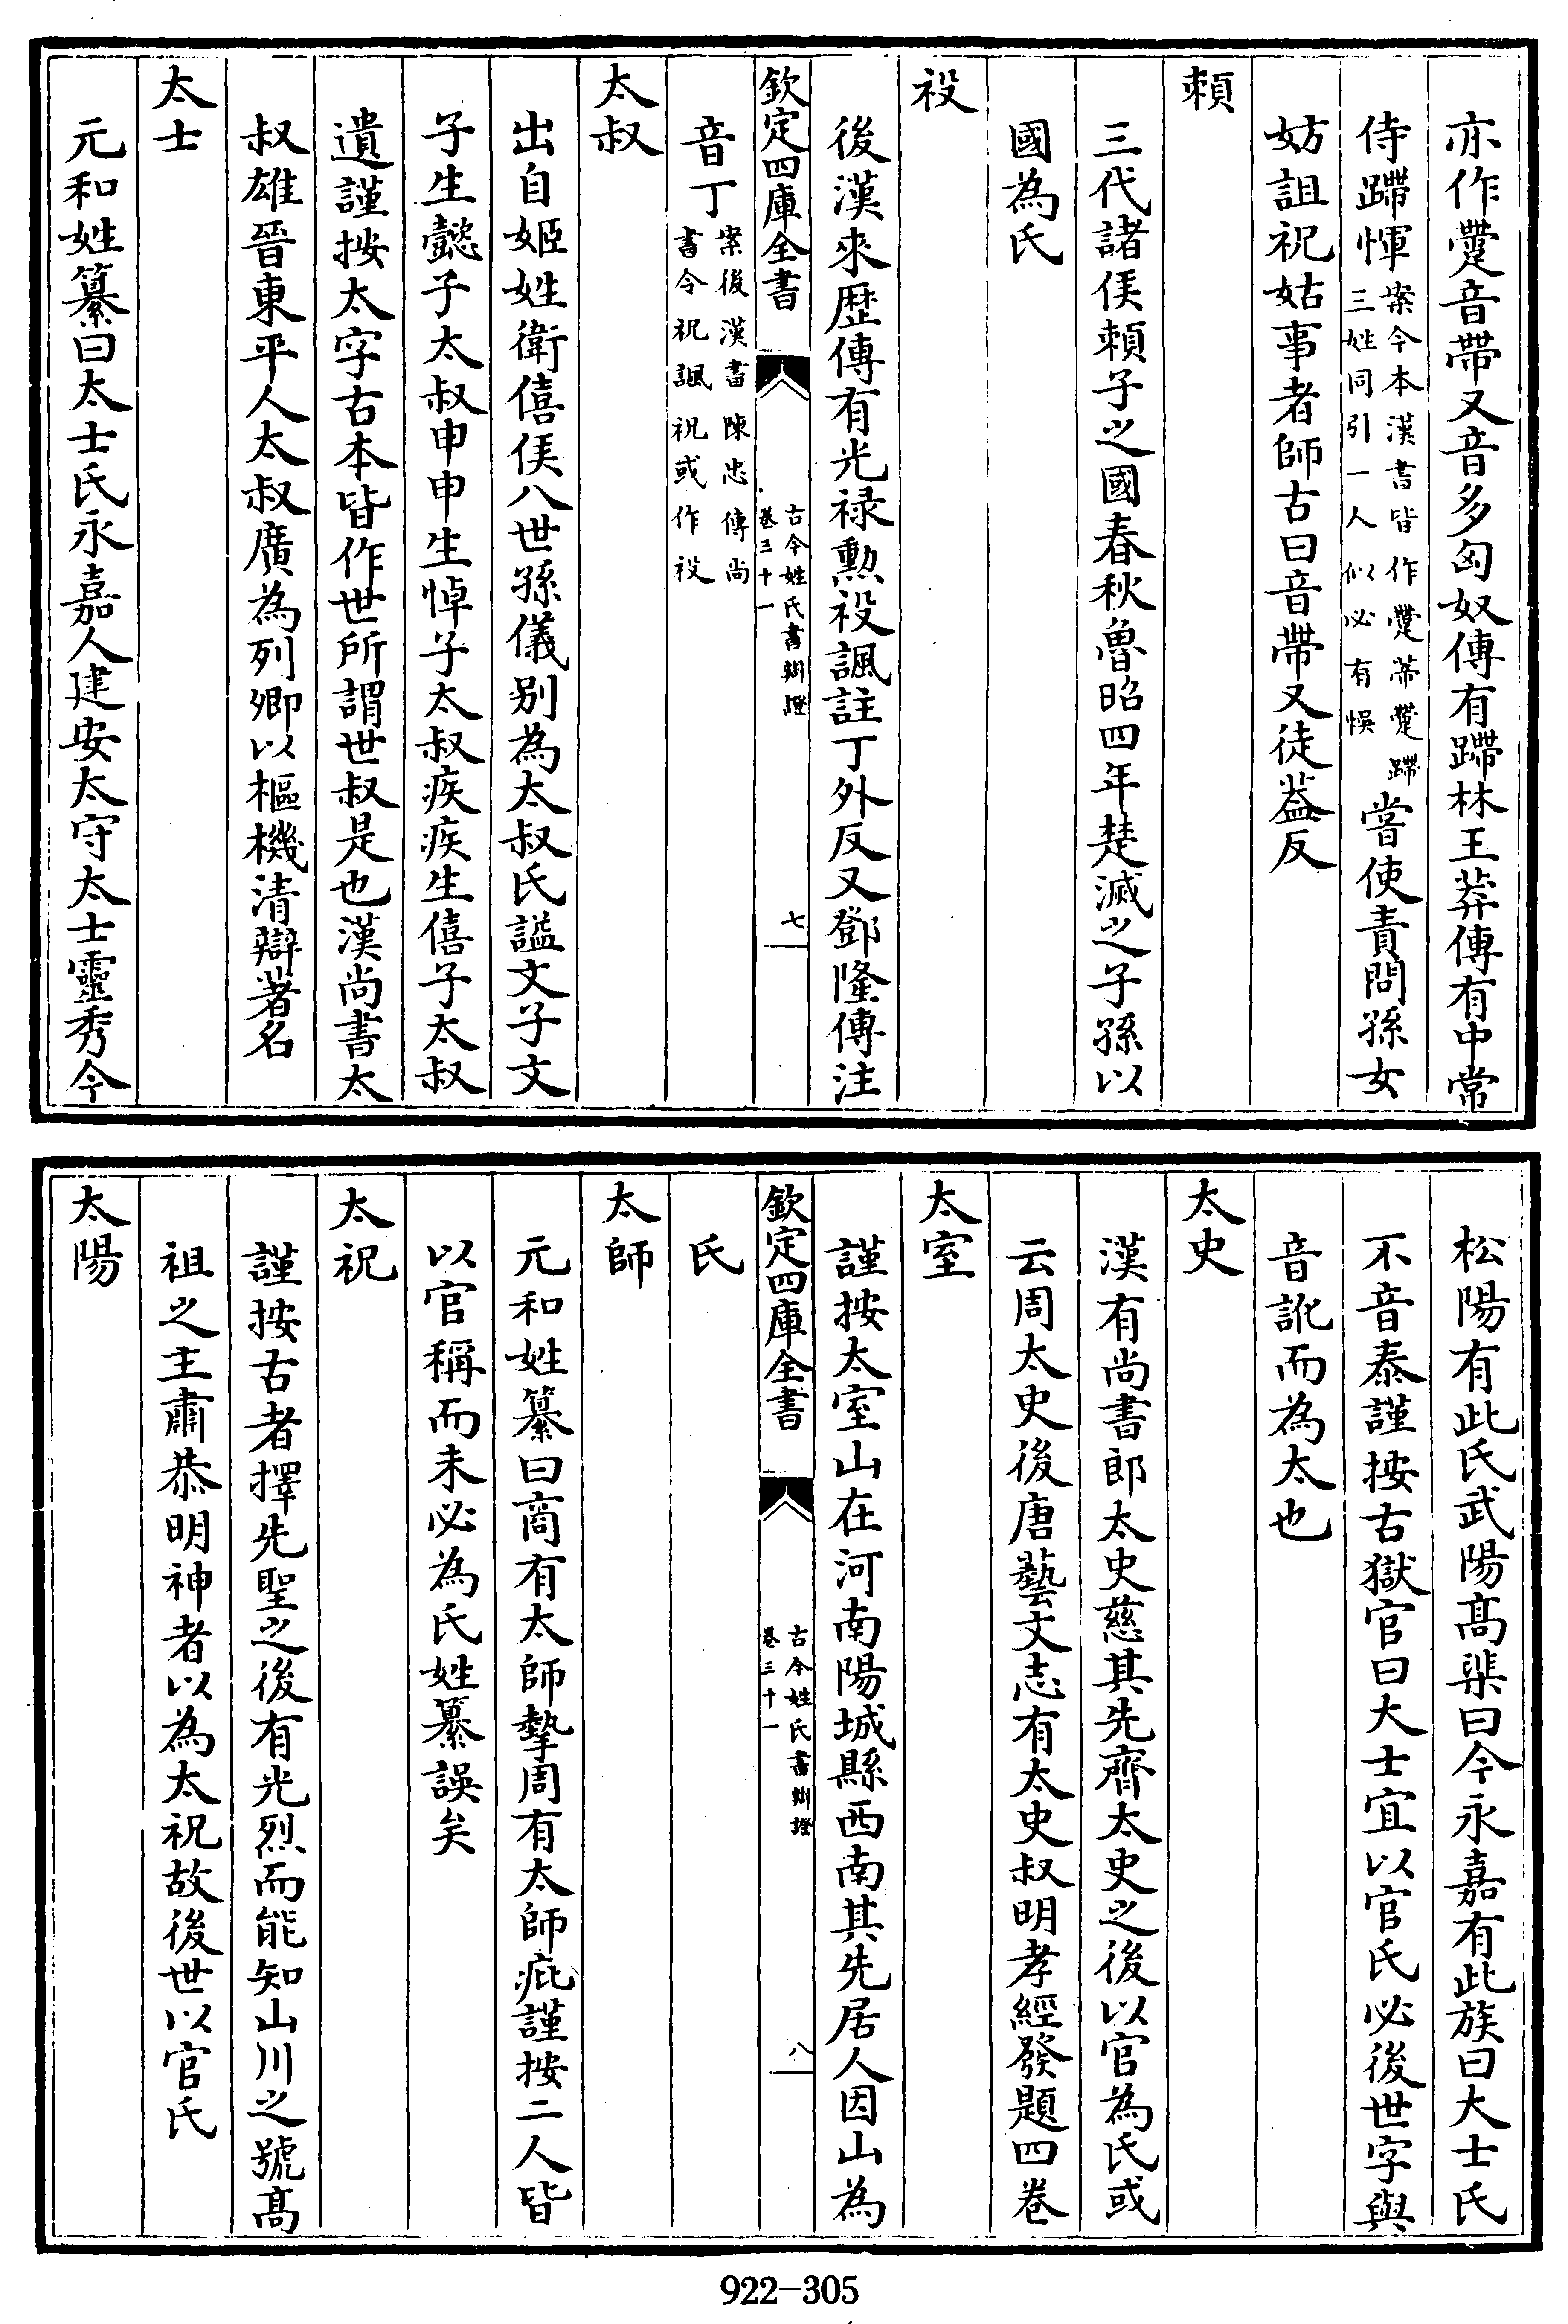 亦作躗音帶又音多匈奴傳有蹛林王莽傳有中常
侍蹛惲
案今本漢書皆作躗帶躗蹛
三姓同引一人似必有悞
當使責問孫女
妨詛祝姑事者師古曰音帶又徒葢反
頼
三代諸侯頼子之國春秋魯昭四年楚滅之子孫以
國為氏
祋
後漢來歷傳有光禄勲祋諷註丁外反又鄧隆傳注
欽定四庫全書
古今姓氏書辯證
卷三十一
七
音丁
案後漢書陳忠傳尚
書令祝諷祝或作祋
太叔
出自姬姓衛僖侯八世孫儀别為太叔氏謚文子文
子生懿子太叔申申生悼子太叔疾疾生僖子太叔
遺謹按太字古本皆作世所謂世叔是也漢尚書太
叔雄晉東平人太叔廣為列卿以樞機清辯著名
太士
元和姓纂曰太士氏永嘉人建安太守太士靈秀今
松陽有此氏武陽髙㮚曰今永嘉有此族曰大士氏
不音泰謹按古獄官曰大士宜以官氏必後世字與
音訛而為太也
太史
漢有尚書郎太史慈其先齊太史之後以官為氏或
云周太史後唐藝文志有太史叔明孝經發題四巻
太室
謹按太室山在河南陽城縣西南其先居人因山為
欽定四庫全書
古今姓氏書辯證
卷三十一
八
氏
太師
元和姓纂曰商有太師摯周有太師疵謹按二人皆
以官稱而未必為氏姓纂誤矣
太祝
謹按古者擇先聖之後有光烈而能知山川之號髙
祖之主肅恭明神者以為太祝故後世以官氏
太陽
922-305